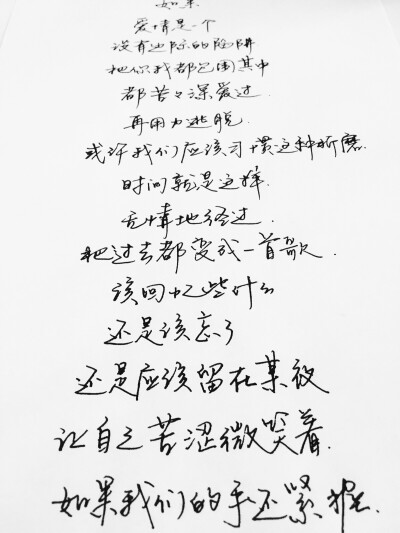 如果
爱情是一个
没有边际的陷阱
把你我都包围其中
都苦々深爱过.
再用力逃脱.
或许我们应该习惯这种折磨.
时间就是这样
无情地经过.
把过去都变成一首歌.
该回忆些什么
还是该忘了
还是应该留在某
让自己苦涩微笑着.
如果我们的手还紧握.